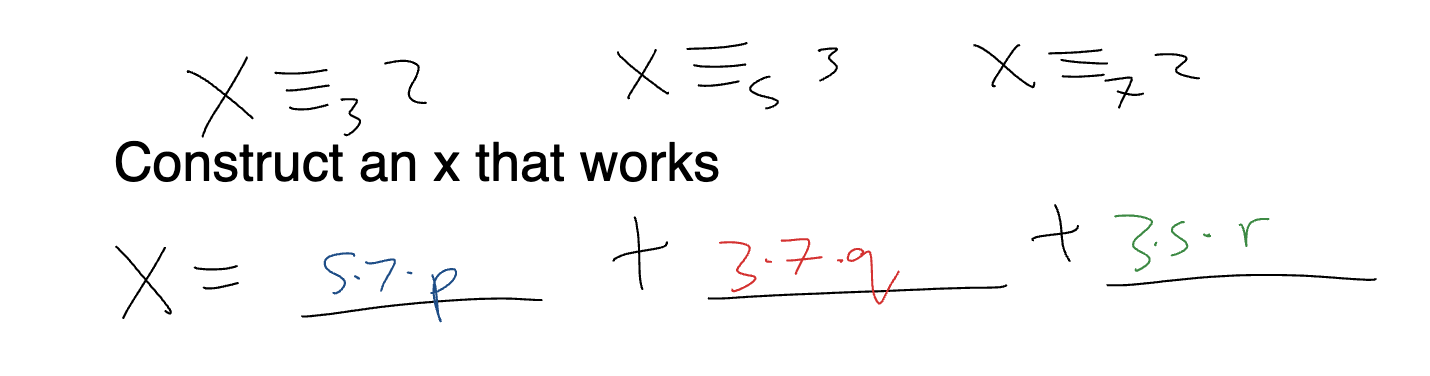 X ≡₃ 2 X ≡₅ 3 X ≡₇ 2
Construct an x that works
X = 5·7·p + 3·7·q + 3·5·r